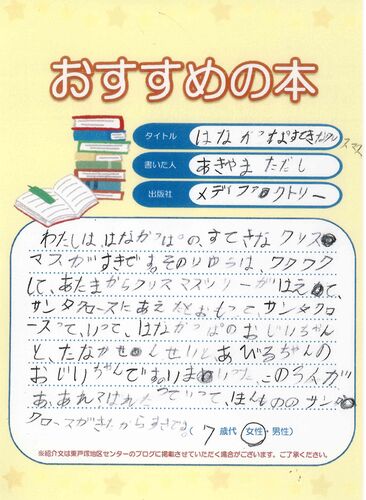 おすすめの本
タイトル はなかっぱすてきなクリスマス
書いた人 あきやま ただし
出版社 メディアファクトリー
わたしは、はなかっぱの、すてきな クリス
マスがすきです。そのりゆうは、ワクワク
して、あたまからクリスマスツリーがはえて、
サンタクロースにあえたとおもって、サンタクロ
ースって、いって、はなかっぱのおじいちゃん
と、たなかせんせいと、あびるちゃんの
おじいちゃんで
あ、あれ
っていって、ほんもののサンタ
クロースがきたからすきです。
( 7 歳代 女性・男性)
※紹介文は東戸塚地区センターのブログに掲載させていただく場合がございます。ご了承ください。